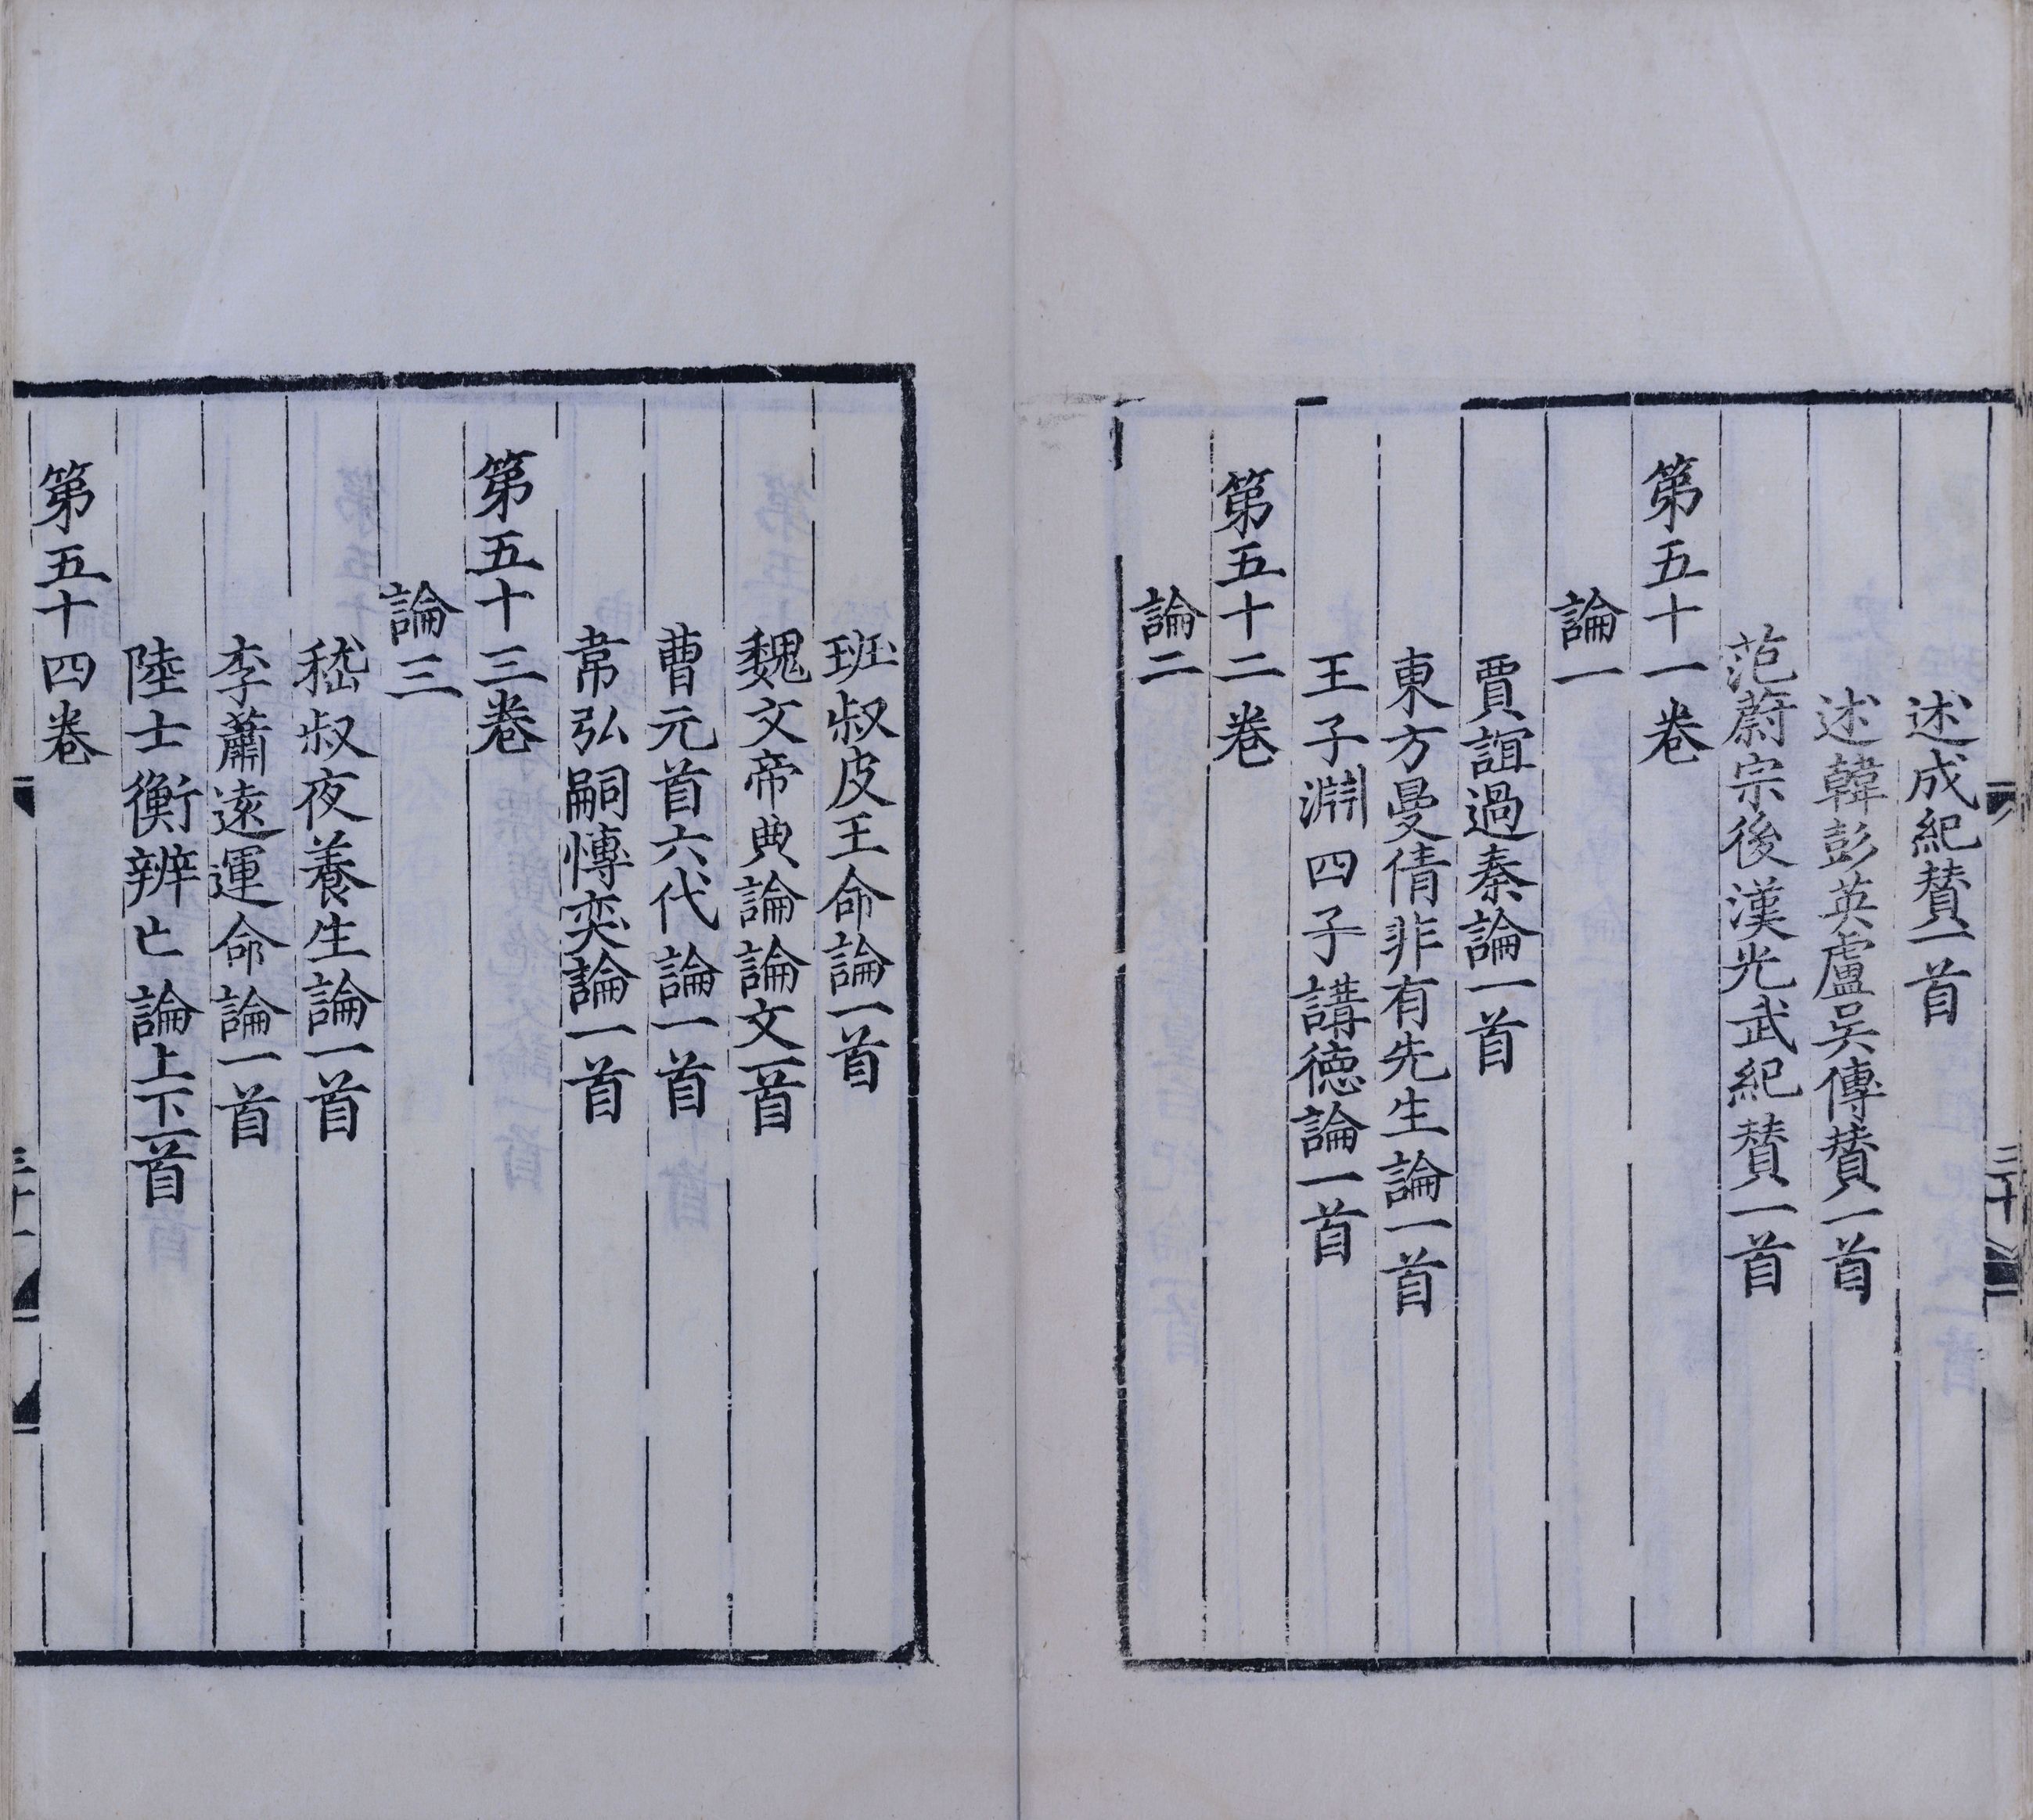 述成紀賛一首
述韓彭英盧吴傳賛一首
范蔚宗後漢光武紀賛一首
第五十一卷
論一
賈誼過秦論一首
東方曼倩非有先生論一首
王子淵四子講徳論一首
第五十二卷
論二
三十
班叔皮王命論一首
魏文帝典論論文一首
曹元首六代論一首
韋弘嗣愽奕論一首
第五十三卷
論三
嵇叔夜養生論一首
李蕭遠運命論一首
陸士衡辨亡論上下二首
第五十四卷
三十一